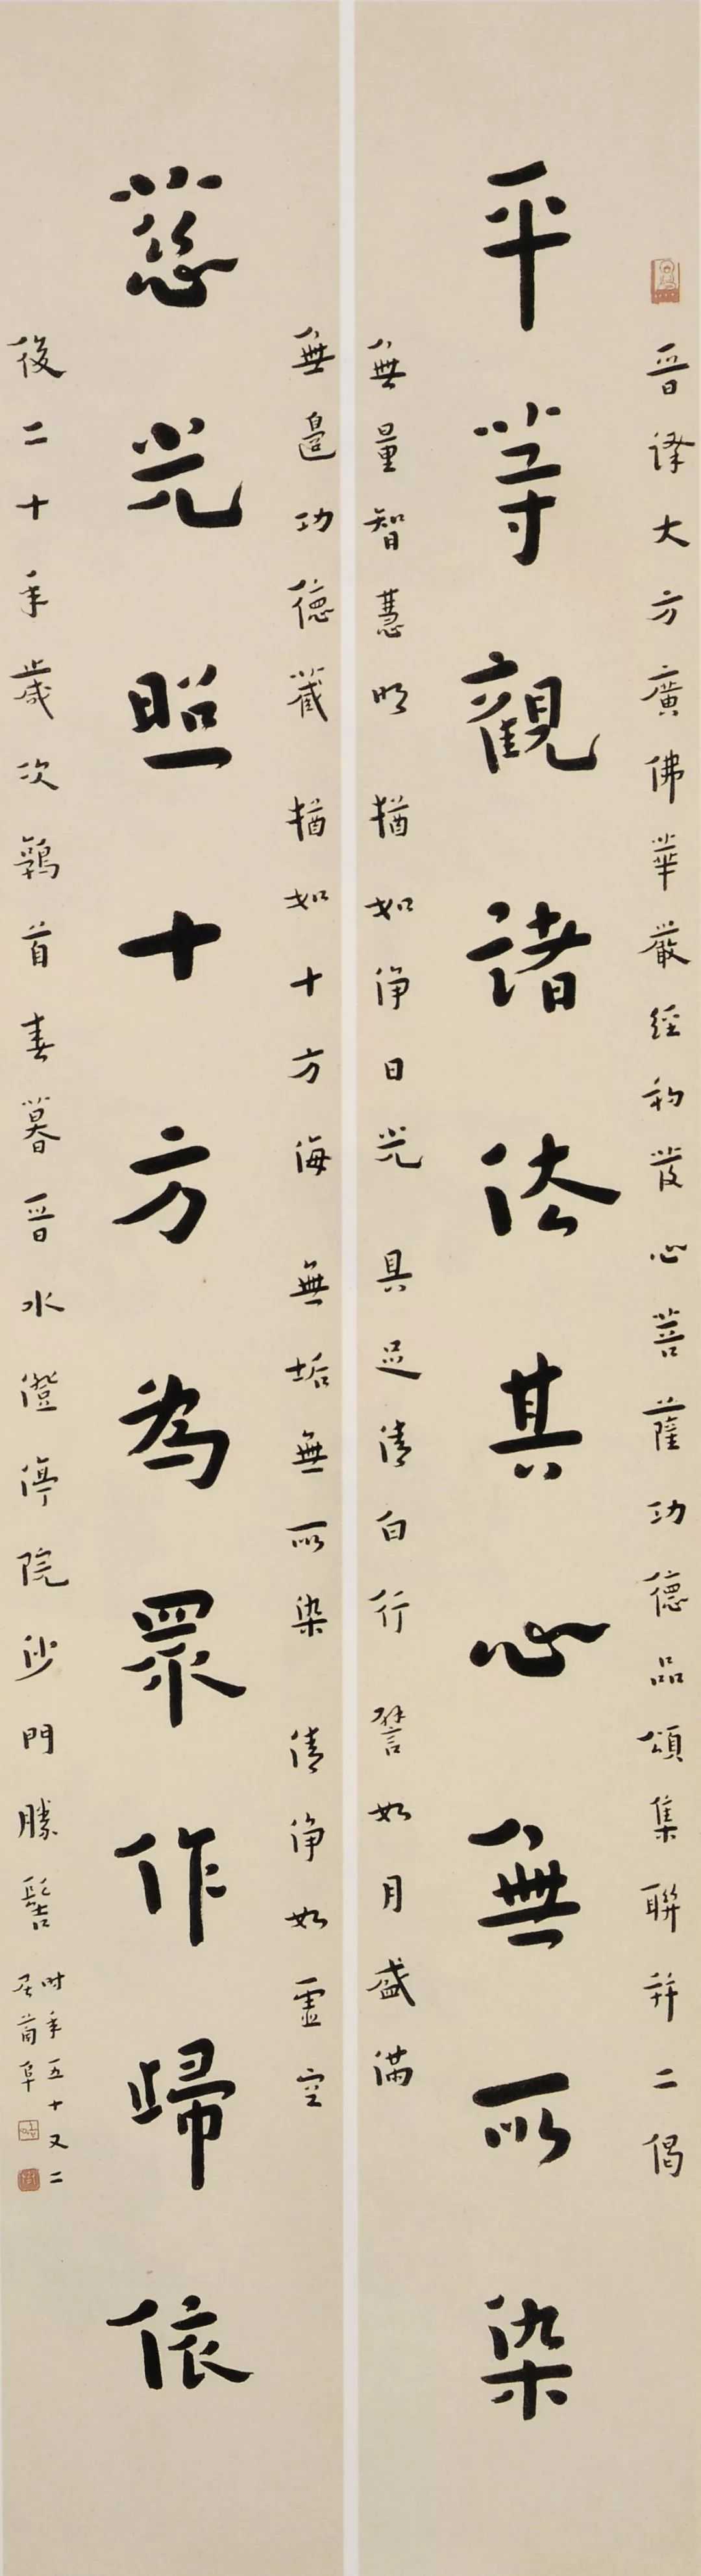 晉譯大方廣佛華嚴經初發心菩薩功德品頌集聯并二偈
平等觀諸法其心無所染
無量智慧明 猶如淨日光 具足清白行 譬如月盛滿
無邊功德藏 猶如十方海 無垢無所染 清淨如虛空
慈光照十方為眾作歸依
後二十年歲次鶉首春暮晉水瀅停院沙門勝髻
時年五十又二
居莆阜